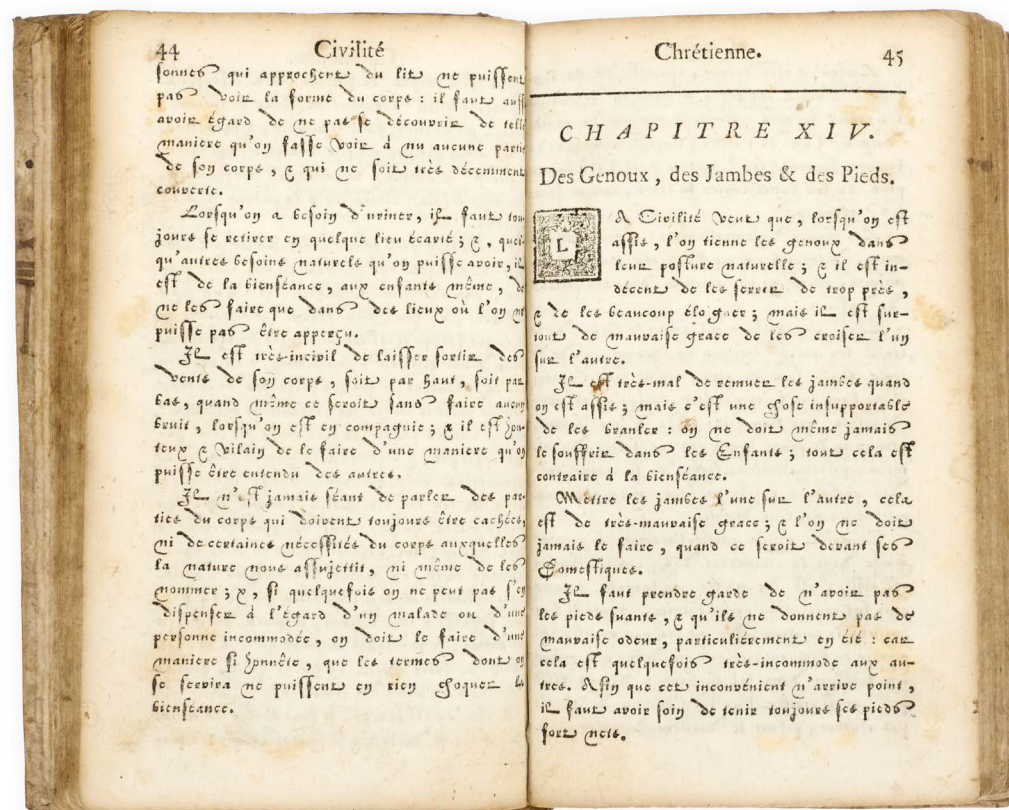 44 Civilité
sonnes qui approchent du lit ne puissent
pas voir la forme du corps : il faut aussi
avoir égard de ne pas se découvrir de telle
maniere qu'on fasse voir à nu aucune partie
de son corps, & qui ne soit très décemment
couverte.
Lorsqu'on a besoin d'uriner, il faut tou-
jours se retirer en quelque lieu écarté ; &, quel-
qu'autres besoins naturels qu'on puisse avoir, il
est de la bienséance, aux enfants même, de
ne les faire que dans des lieux où l'on ne
puisse pas être apperçu.
Il est très-incivil de laisser sortir des
vents de son corps, soit par haut, soit par
bas, quand même ce seroit sans faire aucun
bruit, lorsqu'on est en compagnie ; & il est hon-
teux & vilain de le faire d'une maniere qu'on
puisse être entendu des autres.
Il n'est jamais séant de parler des par-
ties du corps qui doivent toujours être cachées,
ni de certaines nécessités du corps auxquelles
la nature nous assujettit, ni même de les
nommer ; &, si quelquefois on ne peut pas s'en
dispenser à l'égard d'un malade ou d'une
personne incommodée, on doit le faire d'une
maniere si honnête, que les termes dont on
se servira ne puissent en rien choquer la
bienséance.
Chrétienne. 45
CHAPITRE XIV.
Des Genoux, des Jambes & des Pieds.
LA Civilité veut que, lorsqu'on est
assis, l'on tienne les genoux dans
leur posture naturelle ; & il est in-
décent de les serrer de trop près,
& de les beaucoup éloigner ; mais il est sur-
tout de mauvaise grace de les croiser l'un
sur l'autre.
Il est très-mal de remuer les jambes quand
on est assis ; mais c'est une chose insupportable
de les branler : on ne doit même jamais
le souffrir dans les Enfants ; tout cela est
contraire à la bienséance.
Mettre les jambes l'une sur l'autre, cela
est de très-mauvaise grace ; & l'on ne doit
jamais le faire, quand ce seroit devant ses
Domestiques.
Il faut prendre garde de n'avoir pas
les pieds suants, & qu'ils ne donnent pas de
mauvaise odeur, particuliérement en été : car
cela est quelquefois très-incommode aux au-
tres. Afin que cet inconvénient n'arrive point,
il faut avoir soin de tenir toujours ses pieds
fort nets.